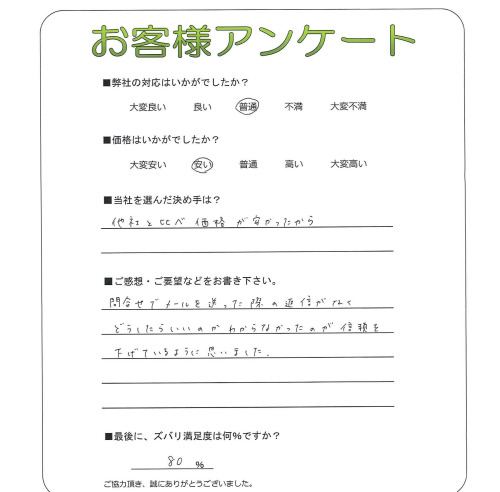 お客様アンケート
■弊社の対応はいかがでしたか？
大変良い 良い 普通 不満 大変不満
■価格はいかがでしたか？
大変安い 安い 普通 高い 大変高い
■当社を選んだ決め手は？
他社と比べ価格が安かったから
■ご感想・ご要望などをお書き下さい。
問合せでメールを送った際の返信がなく
どうしたらいいのかわからなかったのが信頼を
下げているように思いました。
■最後に、ズバリ満足度は何%ですか？
80 %
ご協力頂き、誠にありがとうございました。